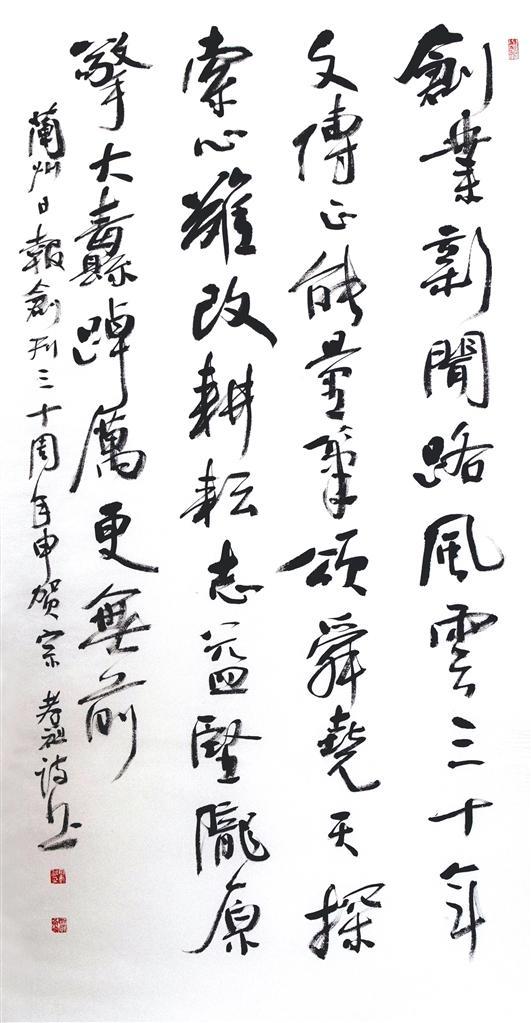 創業新聞路風雲三十年
文傳正能量筆頌舜堯天探
索心難改耕耘志益堅隴原
擎大纛踔厲更無前
蘭州日報創刊三十周年申賀宗孝祖詩書